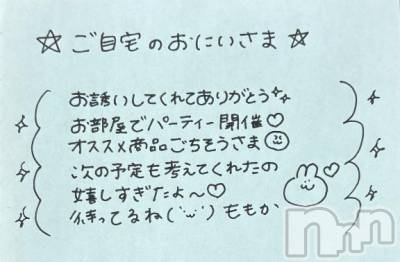 ☆ご自宅のおにいさま☆
お誘いしてくれてありがとう✨
お部屋でパーティー開催♡
オススメ商品ごちそうさま☺
次の予定も考えてくれたの
嬉しすぎたよ〜♡
待ってるね(´˘`) ももか